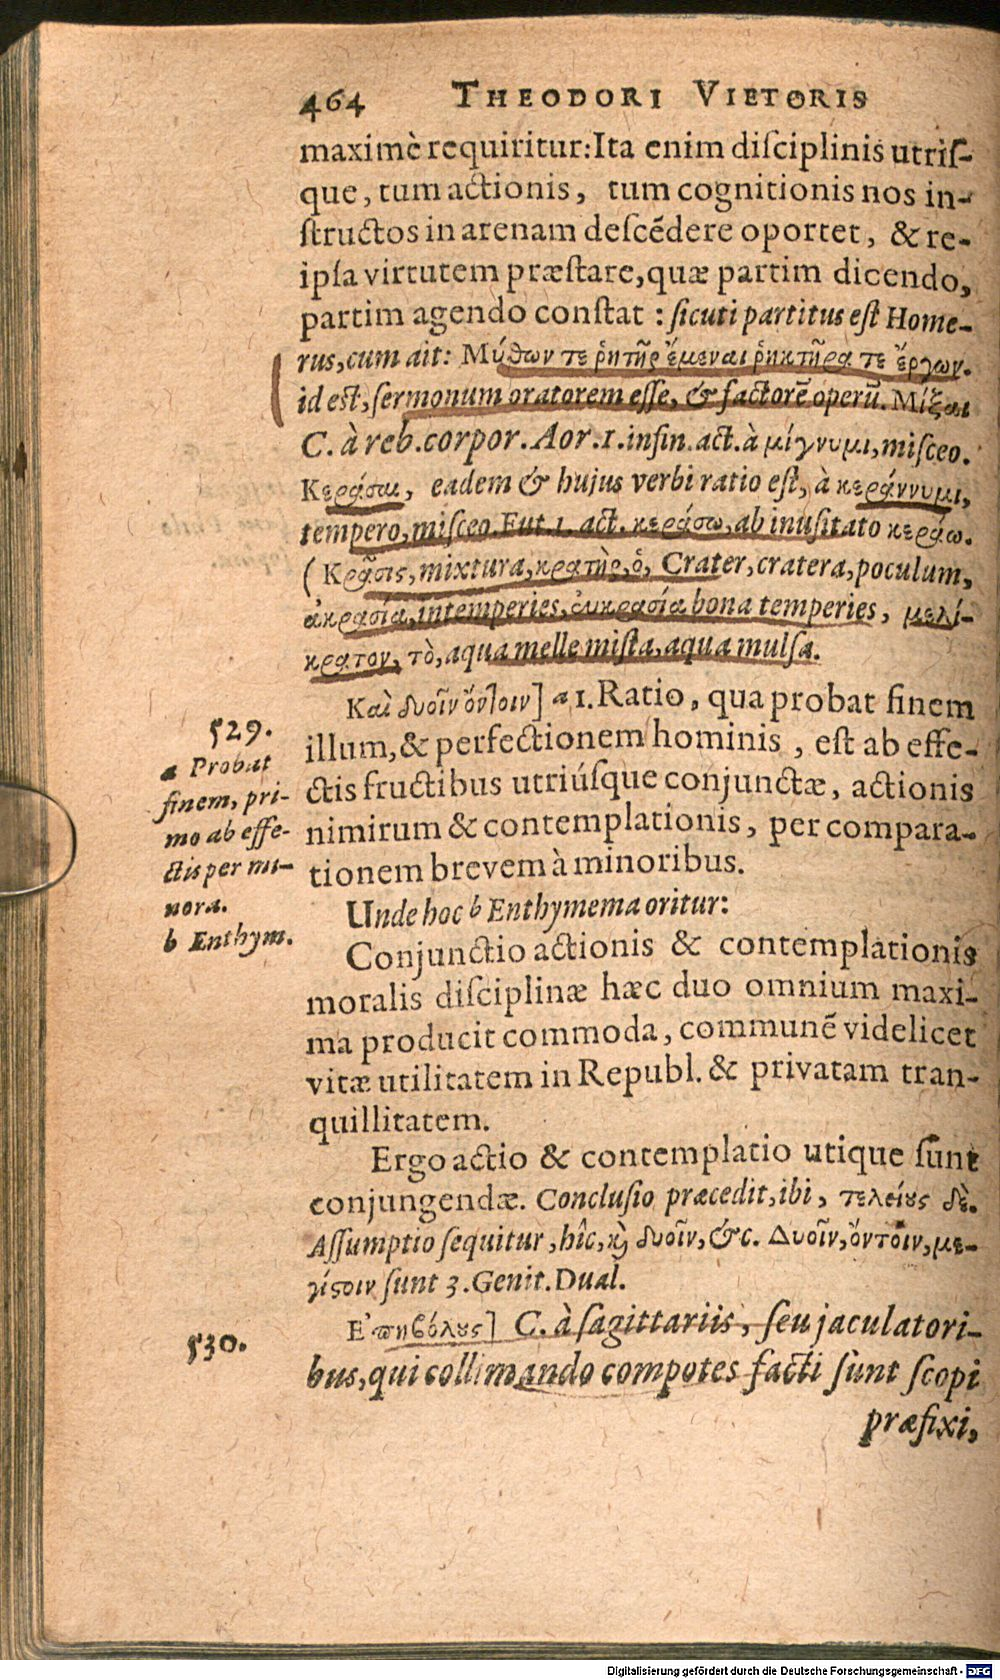 464 THEODORI VIETORIS
maximè requiritur: Ita enim disciplinis utris-
que, tum actionis, tum cognitionis nos in-
structos in arenam descẽdere oportet, & re-
ipsa virtutem præstare, quæ partim dicendo,
partim agendo constat : sicuti partitus est Home-
rus, cum ait: Μύθων τε ῥητῆρ ἔμεναι ῥηκτῆρα τε ἔργων.
id est, sermonum oratorem esse, & factorẽ operũ. Μίξαι
C. à reb. corpor. Aor. 1. infin. act. à μίγνυμι, misceo.
Κεράσαι, eadem & hujus verbi ratio est, à κεράννυμι,
tempero, misceo. Fut. 1. act. κεράσω, ab inusitato κεράω.
(Κρᾶσις, mixtura, κρατὴρ, ὁ, Crater, cratera, poculum,
ἀκρασία, intemperies, εὐκρασία bona temperies, μελί-
κρατον, τὸ, aqua melle mista, aqua mulsa.
Καὶ δυοῖν ὄντοιν] a 1. Ratio, qua probat finem
illum, & perfectionem hominis, est ab effe-
ctis fructibus utriúsque conjunctæ, actionis
nimirum & contemplationis, per compara-
tionem brevem à minoribus.
529.
a Probat
finem, pri-
mo ab effe-
ctis per mi-
nora.
b Enthym.
Unde hoc b Enthymema oritur:
Conjunctio actionis & contemplationis
moralis disciplinæ hæc duo omnium maxi-
ma producit commoda, communẽ videlicet
vitæ utilitatem in Republ. & privatam tran-
quillitatem.
Ergo actio & contemplatio utique sunt
conjungendæ. Conclusio præcedit, ibi, τελείους δὲ.
Assumptio sequitur, hîc, καὶ δυοῖν, &c. Δυοῖν, ὄντοιν, με-
γίστοιν sunt 3. Genit. Dual.
530.
Ἐπηβόλους] C. à sagittariis, seu jaculatori-
bus, qui collimando compotes facti sunt scopi
præfixi,
Digitalisierung gefördert durch die Deutsche Forschungsgemeinschaft - DFG